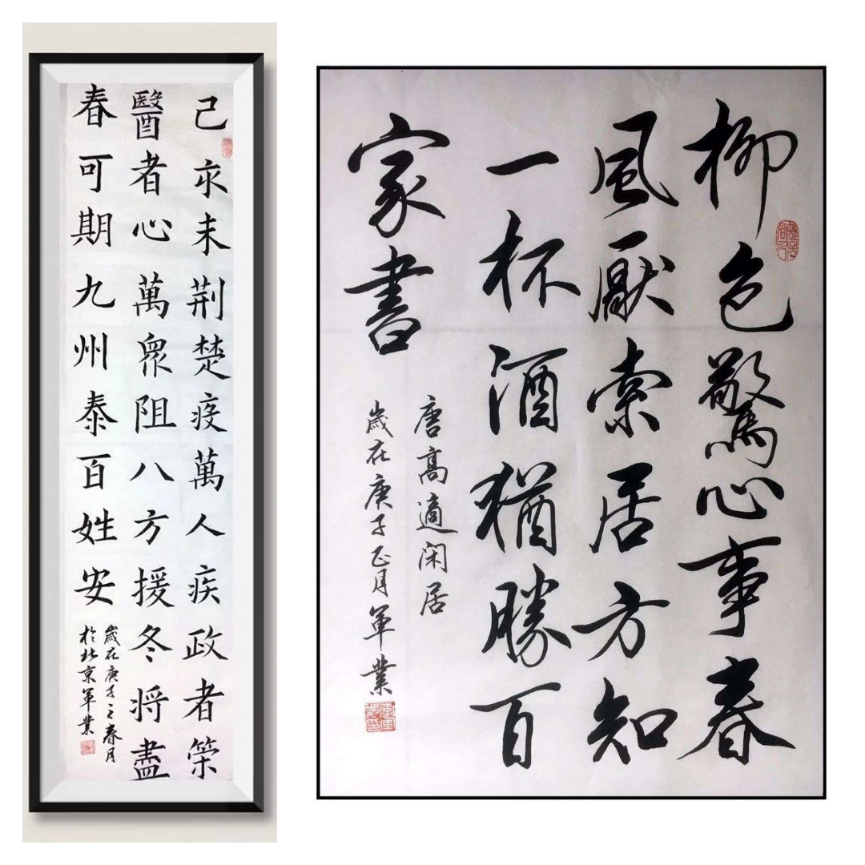 己亥末荆楚疫萬人疾政者策
醫者心萬衆阻八方援冬将盡
春可期九州泰百姓安
歲在庚子之春月
於北京軍業
柳色驚心事春
風厭索居方知
一杯酒猶勝百
家書
唐高適閑居
歲在庚子正月軍業